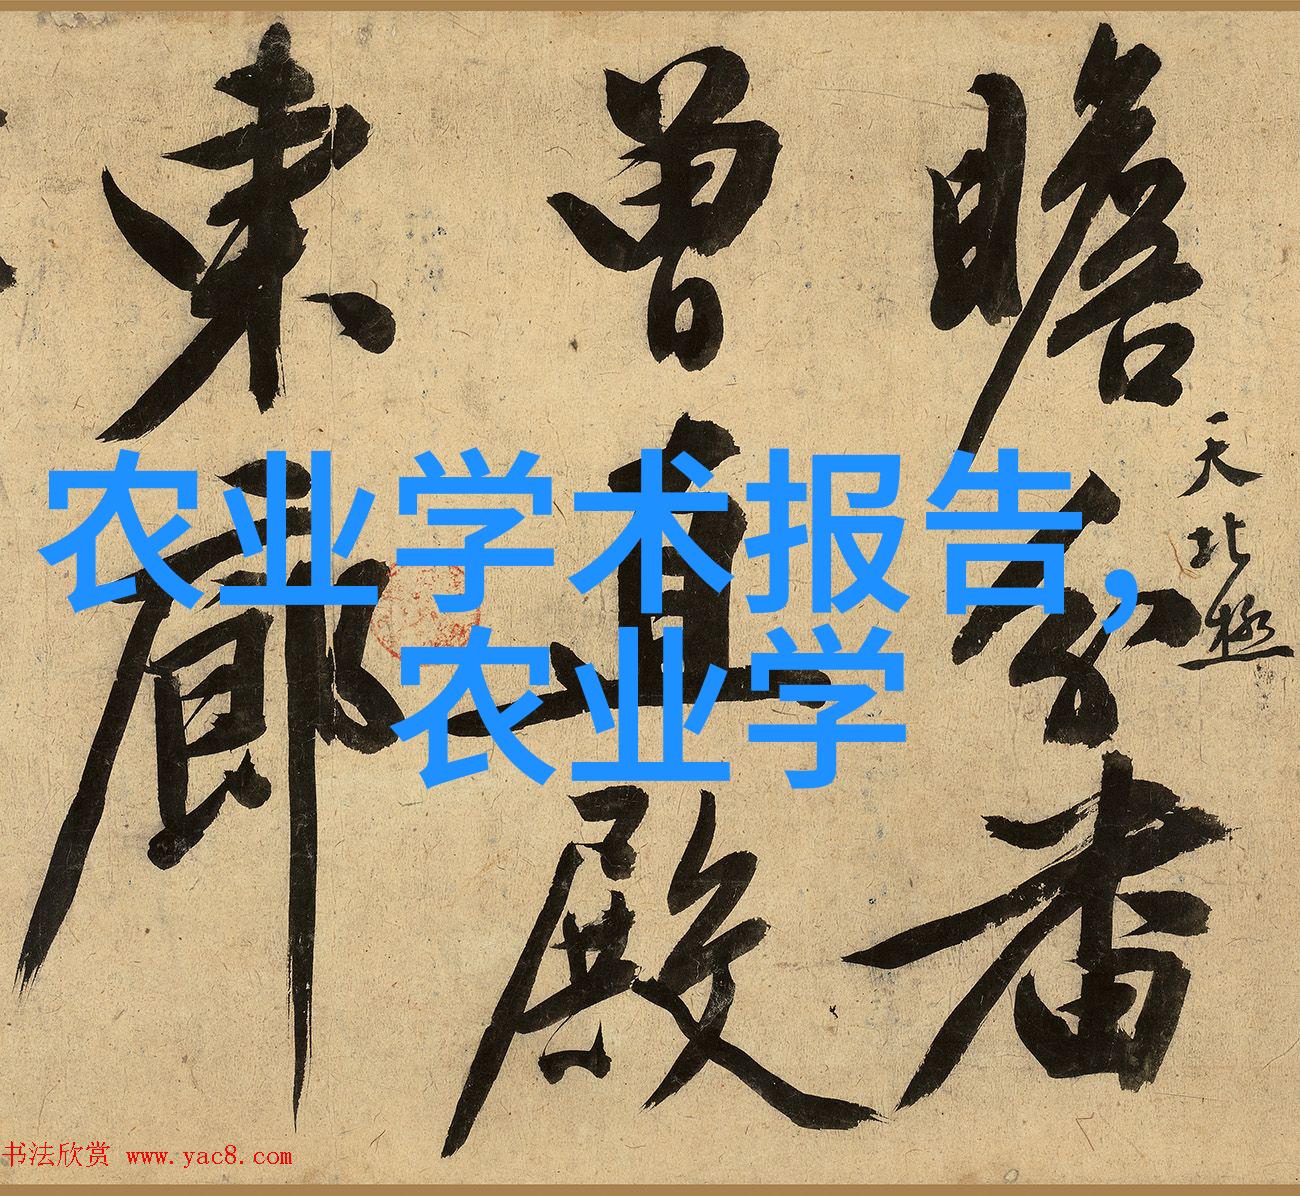 農业学术报告,
农业学
瞻
天北極
曾直殿
東廊
书法欣赏 www.yac8.com